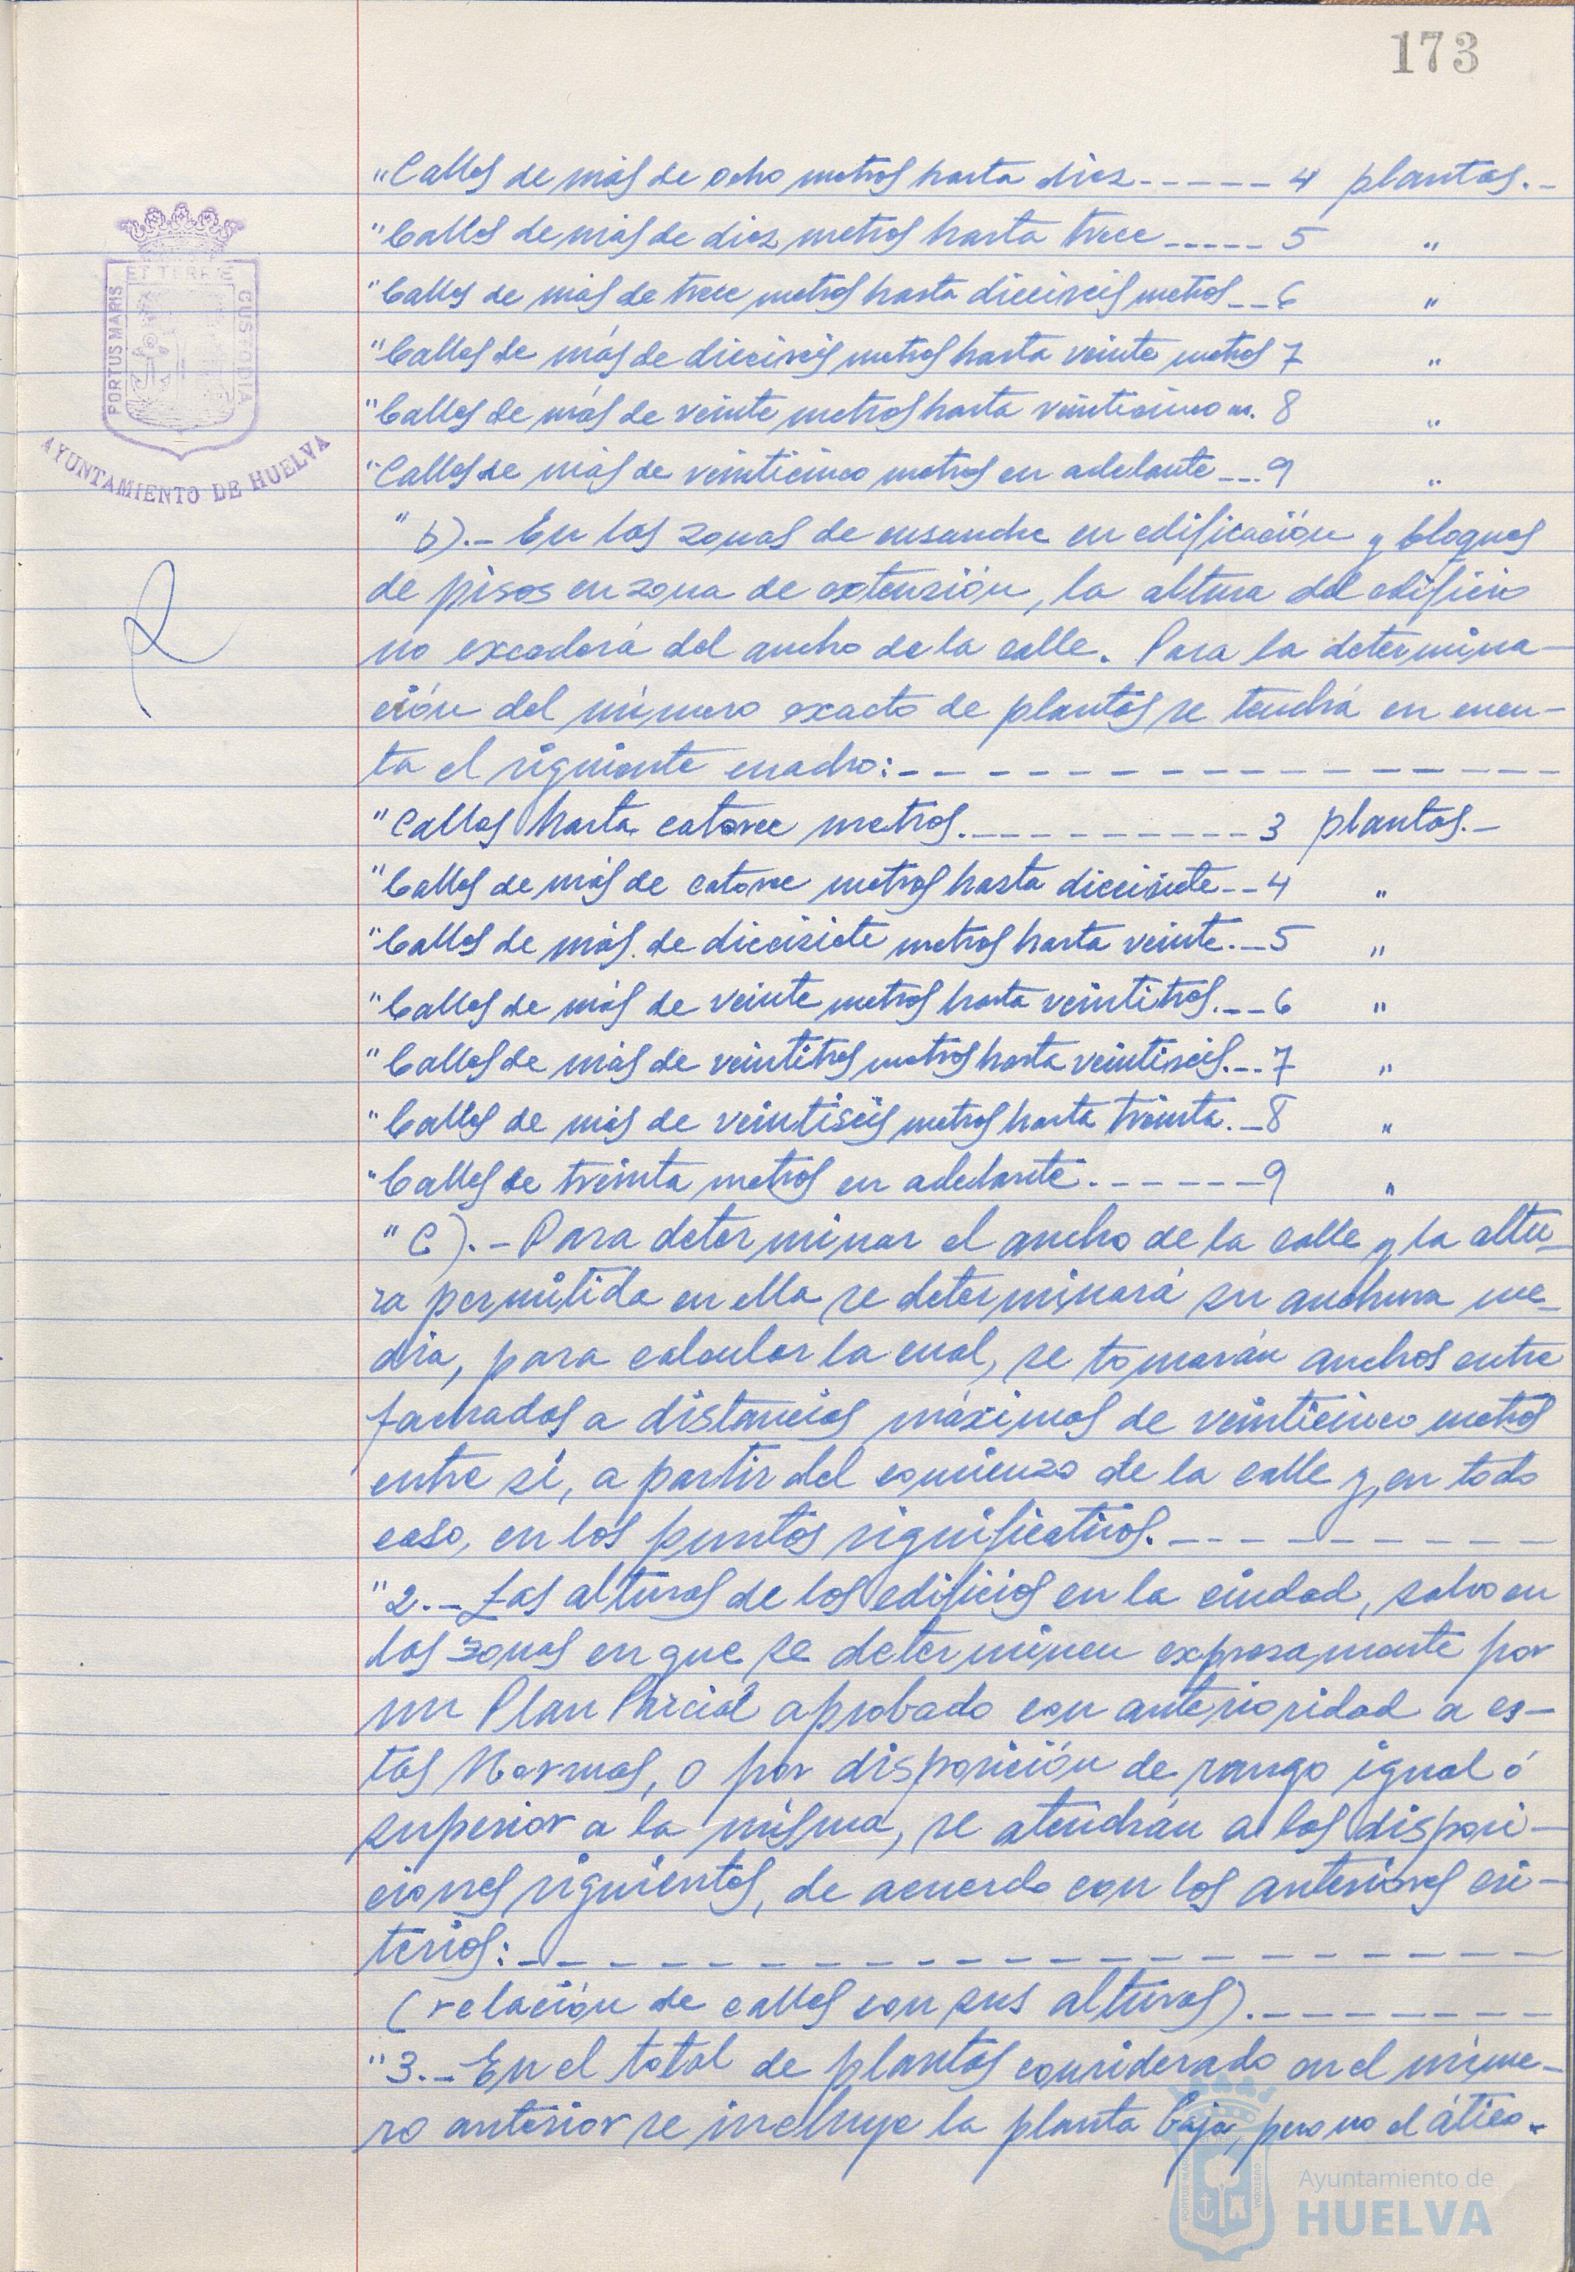 173
"Calles de más de ocho metros hasta diez------4 plantas.-
"Calles de más de diez metros hasta trece-----5 "
"Calles de más de trece metros hasta dieciseis metros--6 "
"Calles de más de dieciseis metros hasta veinte metros 7 "
"Calles de más de veinte metros hasta veinticinco m. 8 "
"Calles de más de veinticinco metros en adelante---9 "
ET TERRE
PORTUS MARIS
CUSTODIA
AYUNTAMIENTO DE HUELVA
"b).- En las zonas de ensanche en edificación y bloques
de pisos en zona de extensión, la altura del edificio
no excederá del ancho de la calle. Para la determina-
ción del número exacto de plantas se tendrá en cuen-
ta el siguiente cuadro:-----------------
"Calles hasta catorce metros.----------3 plantas.-
"Calles de más de catorce metros hasta diecisiete--4 "
"Calles de más de diecisiete metros hasta veinte.-5 "
"Calles de más de veinte metros hasta veintitres.--6 "
"Calles de más de veintitres metros hasta veintiseis.--7 "
"Calles de más de veintiseis metros hasta treinta.-8 "
"Calles de treinta metros en adelante.------9 "
"C).- Para determinar el ancho de la calle y la altu-
ra permitida en ella se determinará su anchura me-
dia, para calcular la cual, se tomarán anchos entre
fachadas a distancias máximas de veinticinco metros
entre sí, a partir del comienzo de la calle y, en todo
caso, en los puntos significativos.----------
"2.- Las alturas de los edificios en la ciudad, salvo en
las zonas en que se determinen expresamente por
un Plan Parcial aprobado con anterioridad a es-
tas Normas, o por disposición de rango igual ó
superior a la misma, se atendrán a las disposi-
ciones siguientes, de acuerdo con los anteriores cri-
terios:-----------------------
(relación de calles con sus alturas).--------
"3.- En el total de plantas considerado en el núme-
ro anterior se incluye la planta baja, pero no el ático.-
Ayuntamiento de
HUELVA